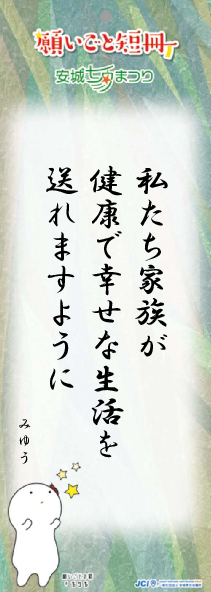 願いごと短冊
安城七夕まつり
私たち家族が
健康で幸せな生活を
送れますように
みゆう
JCI